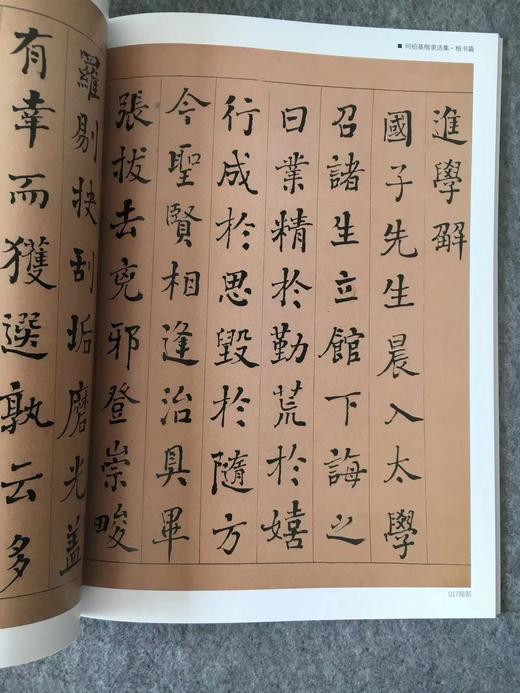 何绍基楷隶选集·楷书篇
進學解
國子先生晨入太學
召諸生立館下誨之
曰業精於勤荒於嬉
行成於思毀於隨方
今聖賢相逢治具畢
張拔去兇邪登崇畯
017局部
羅剔抉刮垢磨光蓋
有幸而獲選孰云多